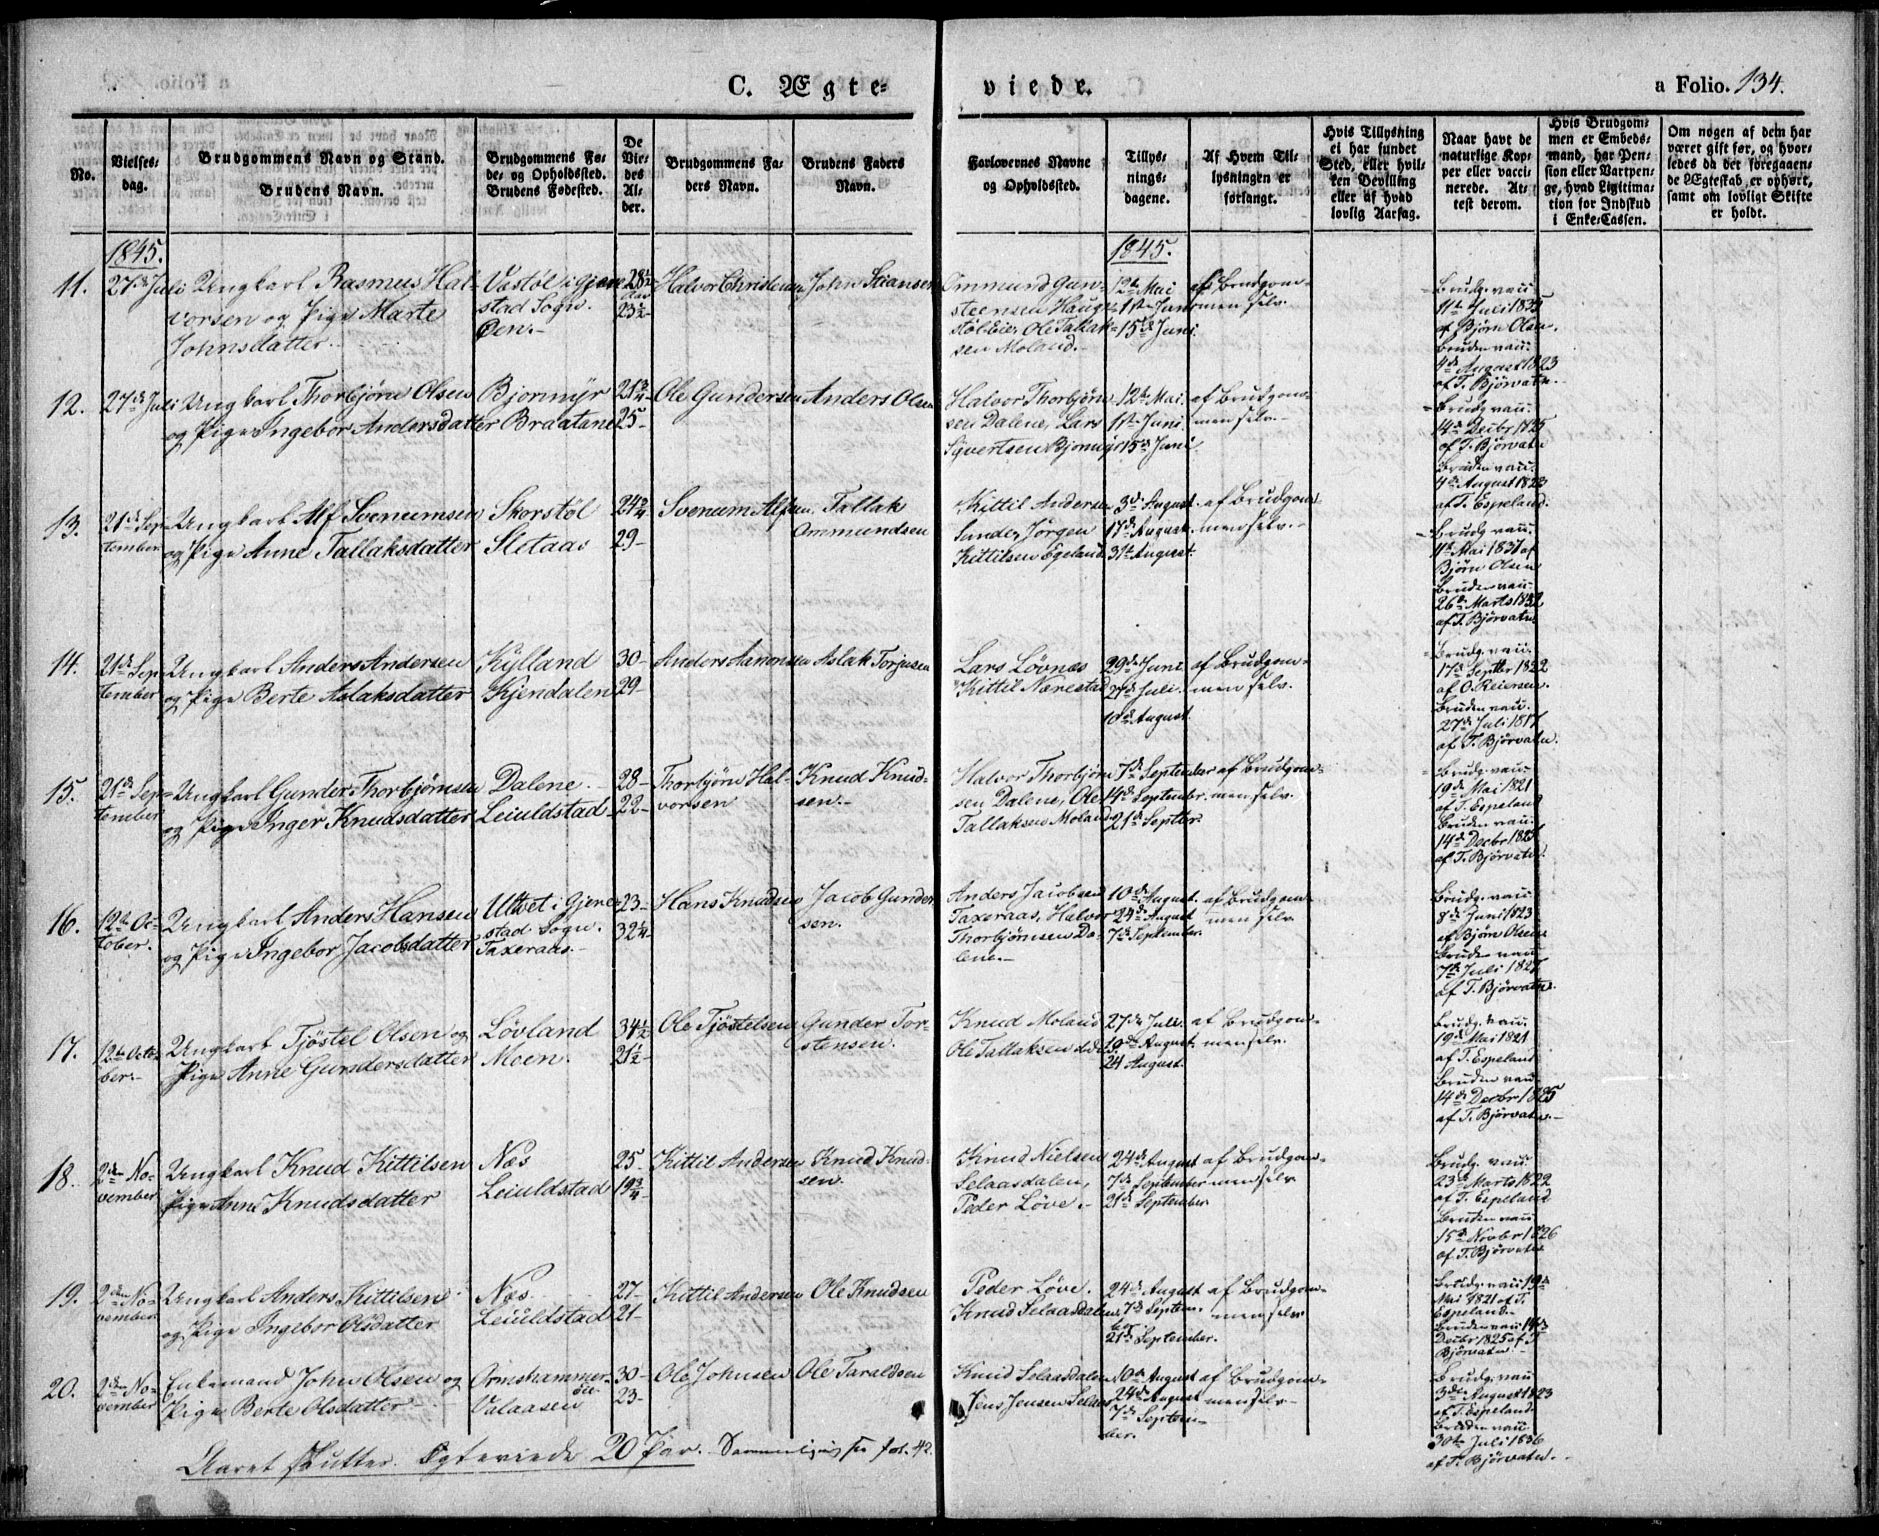 C. Ægte-
viede.
a Folio. 134.
No.
Vielses-
dag.
Brudgommens Navn og Stand.
Brudens Navn.
Brudgommens Fø-
de- og Opholdssted.
Brudens Fødested.
De
Vie-
des
Al-
der.
Brudgommens Fa-
ders Navn.
Brudens Faders
Navn.
Forlovernes Navne
og Opholdssted.
Tillys-
nings-
dagene.
Af Hvem Til-
lysningen er
forlangt.
Hvis Tillysning
ei har fundet
Sted, eller hvil-
ken Bevilling
eller af hvad
lovlig Aarsag.
Naar havt de
naturlige Kop-
per eller vacci-
nerede. At-
test derom.
Hvis Brudgom-
men er Embeds-
mand, har Pen-
sion eller Vartpen-
ge, hvad Ligitima-
tion for Indskud
i Enke-Cassen.
Om nogen af dem har
været gift før, og hvor-
ledes da det foregaaen-
de Ægteskab er ophørt,
samt om lovligt Skifte
er holdt.
1845.
1845.
11.
27de Juli
Ungkarl Rasmus Hal-
vorsen og Pige Marte
Johnsdatter.
Vastøl i Gjerre-
stad Sogn.
Øen.
28½
23½
Halvor Christensen
John Stiansen
Ommund Gun-
steensen Haug-
støl Eie, Ole Tallak-
sen Moland.
12te Mai
1ste Juni
15de Juni.
af Brudgom-
men selv.
Brudg. vacc.
11te Juli 1835
af Bjørn Olsen.
Bruden vacc.
4de August 1823
af T. Bjørvatn.
12.
27de Juli
Ungkarl Thorbjørn Olsen
og Pige Ingebor Andersdatter
Bjormyr
Braatane
21¾
25
Ole Gundersen
Anders Olsen
Halvor Thorbjørn-
sen Dalene, Lars
Sivertsen Bjormyr
12te Mai.
1ste Juni
15de Juni
af Brudgom-
men selv.
Brudg. vacc.
14de Decbr 1825
af T. Bjørvatn
Bruden vacc.
4de August 1823
af T. Espeland.
13.
21de Sep-
tember
Ungkarl Alf Svenumsen
og Pige Anne Tallaksdatter
Skorstøl
Sletaas
24¾
29
Svenum Alfsen,
Tallak
Ommundsen
Kittil Andersen
Sunde, Jørgen
Kittilsen Egeland
3de August.
17de August.
31te August.
af Brudgom-
men selv.
Brudg. vacc.
11te Mai 1831 af
Bjørn Olsen
Bruden vacc.
26de Marts 1832
af T. Bjørvatn
14.
21de Sep-
tember
Ungkarl Anders Andersen
og Pige Berte Aslaksdatter
Kylland
Kjendalen
30
29
Anders Aanonsen
Aslak Torjusen
Lars Løvnæs
Kittil Nærestad
29de Juni
27de Juli.
10de August.
af Brudgom-
men selv.
Brudg. vacc.
17de Septbr 1822
af O. Reiersen.
Bruden vacc.
27de Juli 1817
af T. Bjørvatn.
15.
21de Sep-
tember
Ungkarl Gunder Thorbjørnsen
og Pige Inger Knudsdatter
Dalene.
Leiuldstad
28
22
Thorbjørn Hal-
vorsen
Knud Knud-
sen.
Halvor Thorbjørn-
sen Dalene, Ole
Tallaksen Moland
7de September
14de Septembr.
21de Septbr.
af Brudgom-
men selv.
Brudg. vacc.
19de Mai 1821
af T. Espeland
Bruden vacc.
14de Decbr 1825
af T. Bjørvatn.
16.
12te Oc-
tober.
Ungkarl Anders Hansen
og Pige Ingebor Jacobsdatter
Ulvet i Gjerre-
stad Sogn.
Taxeraas
23
32¼
Hans Knudsen
Jacob Gunder-
sen.
Anders Jacobsen
Taxeraas, Halvor
Thorbjørnsen Da-
lene.
10de August.
24de August
7de September.
af Brudgom-
men selv
Brudg. vacc.
8de Juni 1823
af Bjørn Olsen
Bruden vacc.
7de Juli 1827
af T. Bjørvatn.
17.
12te Octo-
ber.
Ungkarl Tjøstel Olsen og
Pige Anne Gundersdatter
Løvland
Moen.
34½
21½
Ole Tjøstelsen
Gunder Tor-
stensen.
Knud Moland
Ole Tallaksen
27de Juli.
10de August.
24 August.
af Brudgom-
men selv.
Brudg. vacc.
19de Mai 1821
af T. Espeland
Bruden vacc.
14de Decbr 1825
af T. Bjørvatn.
18.
2den No-
vember.
Ungkarl Knud Kittilsen
Pige Anne Knudsdatter
Næs
Leiuldstad
25
19¾
Kittil Andersen
Knud Knud-
sen.
Knud Nielsen
Selaasdalen,
Peder Løve.
24de August
7de September
21de September
af Brudgom-
men selv
Brudg. vacc.
23de Marts 1822
af T. Espeland
Bruden vacc.
15de Novbr 1826
af T. Bjørvatn
19.
2den No-
vember.
Ungkarl Anders Kittilsen
og Pige Ingebor Olsdatter
Næs.
Leiuldstad
27
21
Kittil Andersen
Ole Knudsen
Peder Løve.
Knud Selaasdalen,
24de August
7de Septem-
ber
21de September.
af Brudgom-
men selv
Brudg. vacc. 19de
Mai 1821 af T.
Espeland.
Bruden vacc. 14de
Decbr 1825 af T.
Bjørvatn
20.
2den No-
vember
Enkemand John Olsen og
Pige Berte Olsdatter
Ormshammer-
en
Valaasen
30
23
Ole Johnsen
Ole Taraldsen
Knud Selaasdalen
Jens Jensen Selaas
10de August
24de August
7de Septem-
ber.
af Brudgom-
men selv
Brudg. vacc
3die August 1823
af T. Espeland
Bruden vacc
30te Juli 1836
af T. Bjørvatn.
Aaret slutter. Egteviede 20 Par. Sammenlign fol. 42.